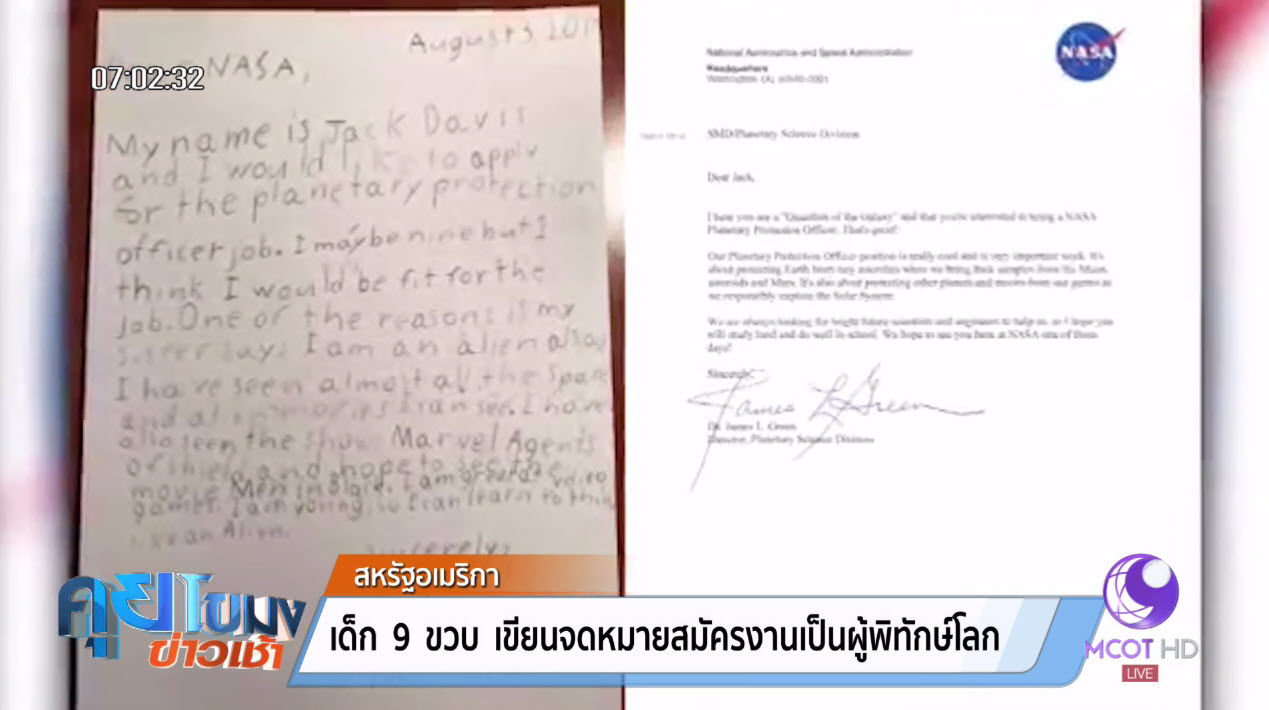 07:02:32
August 3, 201
NASA,
My name is Jack Davis
and I would like to apply
for the planetary protection
officer job. I may be nine but I
think I would be fit for the
job. One of the reasons is my
sister says I am an alien also
I have seen almost all the space
and alien movies I can see. I have
also seen the show Marvel Agents
of Shield and hope to see the
movie Men in Black. I am great at video
games. I am young, so I can learn to think
like an Alien.
Sincerely,
National Aeronautics and Space Administration
Headquarters
Washington, DC
NASA
SMD/Planetary Science Division
Dear Jack,
I hear you are a "Guardian of the Galaxy" and that you're interested in being a NASA
Planetary Protection Officer. That's great!
Our Planetary Protection Officer position is really cool and is very important work. It's
about protecting Earth from tiny microbes when we bring back samples from the Moon,
asteroids and Mars. It's also about protecting other planets and moons from our germs as
we responsibly explore the Solar System.
We are always looking for bright future scientists and engineers to help us, so I hope you
will study hard and do well in school. We hope to see you here at NASA one of these
days!
Sincerely,
James L Green
Dr. James L. Green
Director, Planetary Science Division
สหรัฐอเมริกา
เด็ก 9 ขวบ เขียนจดหมายสมัครงานเป็นผู้พิทักษ์โลก
คุยโขมง
ข่าวเช้า
MCOT HD
LIVE